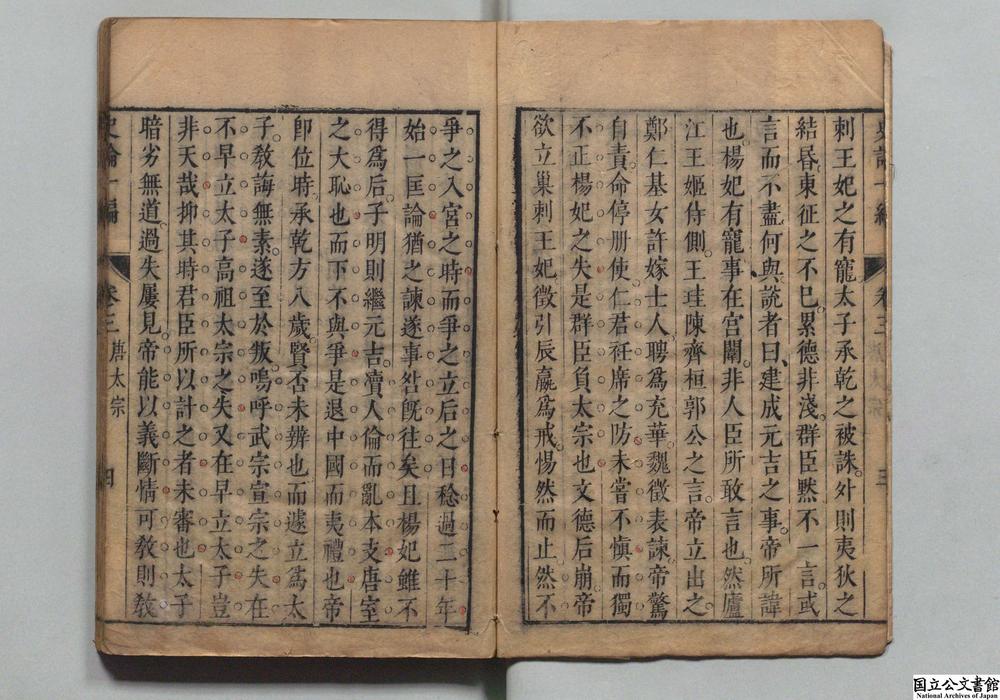 刺王妃之有寵太子承乾之被誅外則夷狄之
結昏東征之不已累德非淺群臣黙不一言或
言而不盡何與説者曰建成元吉之事帝所諱
也楊妃有寵事在宮闈非人臣所敢言也然廬
江王姬侍側王珪陳齊桓郭公之言帝立出之
鄭仁基女許嫁士人聘爲充華魏徵表諫帝驚
自責命停册使仁君袵席之防未嘗不慎而獨
不正楊妃之失是群臣負太宗也文德后崩帝
欲立巢刺王妃徵引辰嬴爲戒惕然而止然不
爭之入宮之時而爭之立后之日稔過二十年
始一匡論猶之諫遂事咎旣往矣且楊妃雖不
得爲后子明則繼元吉瀆人倫而亂本支唐室
之大恥也而下不與爭是退中國而夷禮也帝
卽位時承乾方八歲賢否未辨也而遽立爲太
子教誨無素遂至於叛嗚呼武宗宣宗之失在
不早立太子高祖太宗之失又在早立太子豈
非天哉抑其時君臣所以計之者未審也太子
暗劣無道過失屢見帝能以義斷情可教則教
史論一編 卷三 唐太宗 四
国立公文書館
National Archives of Japan